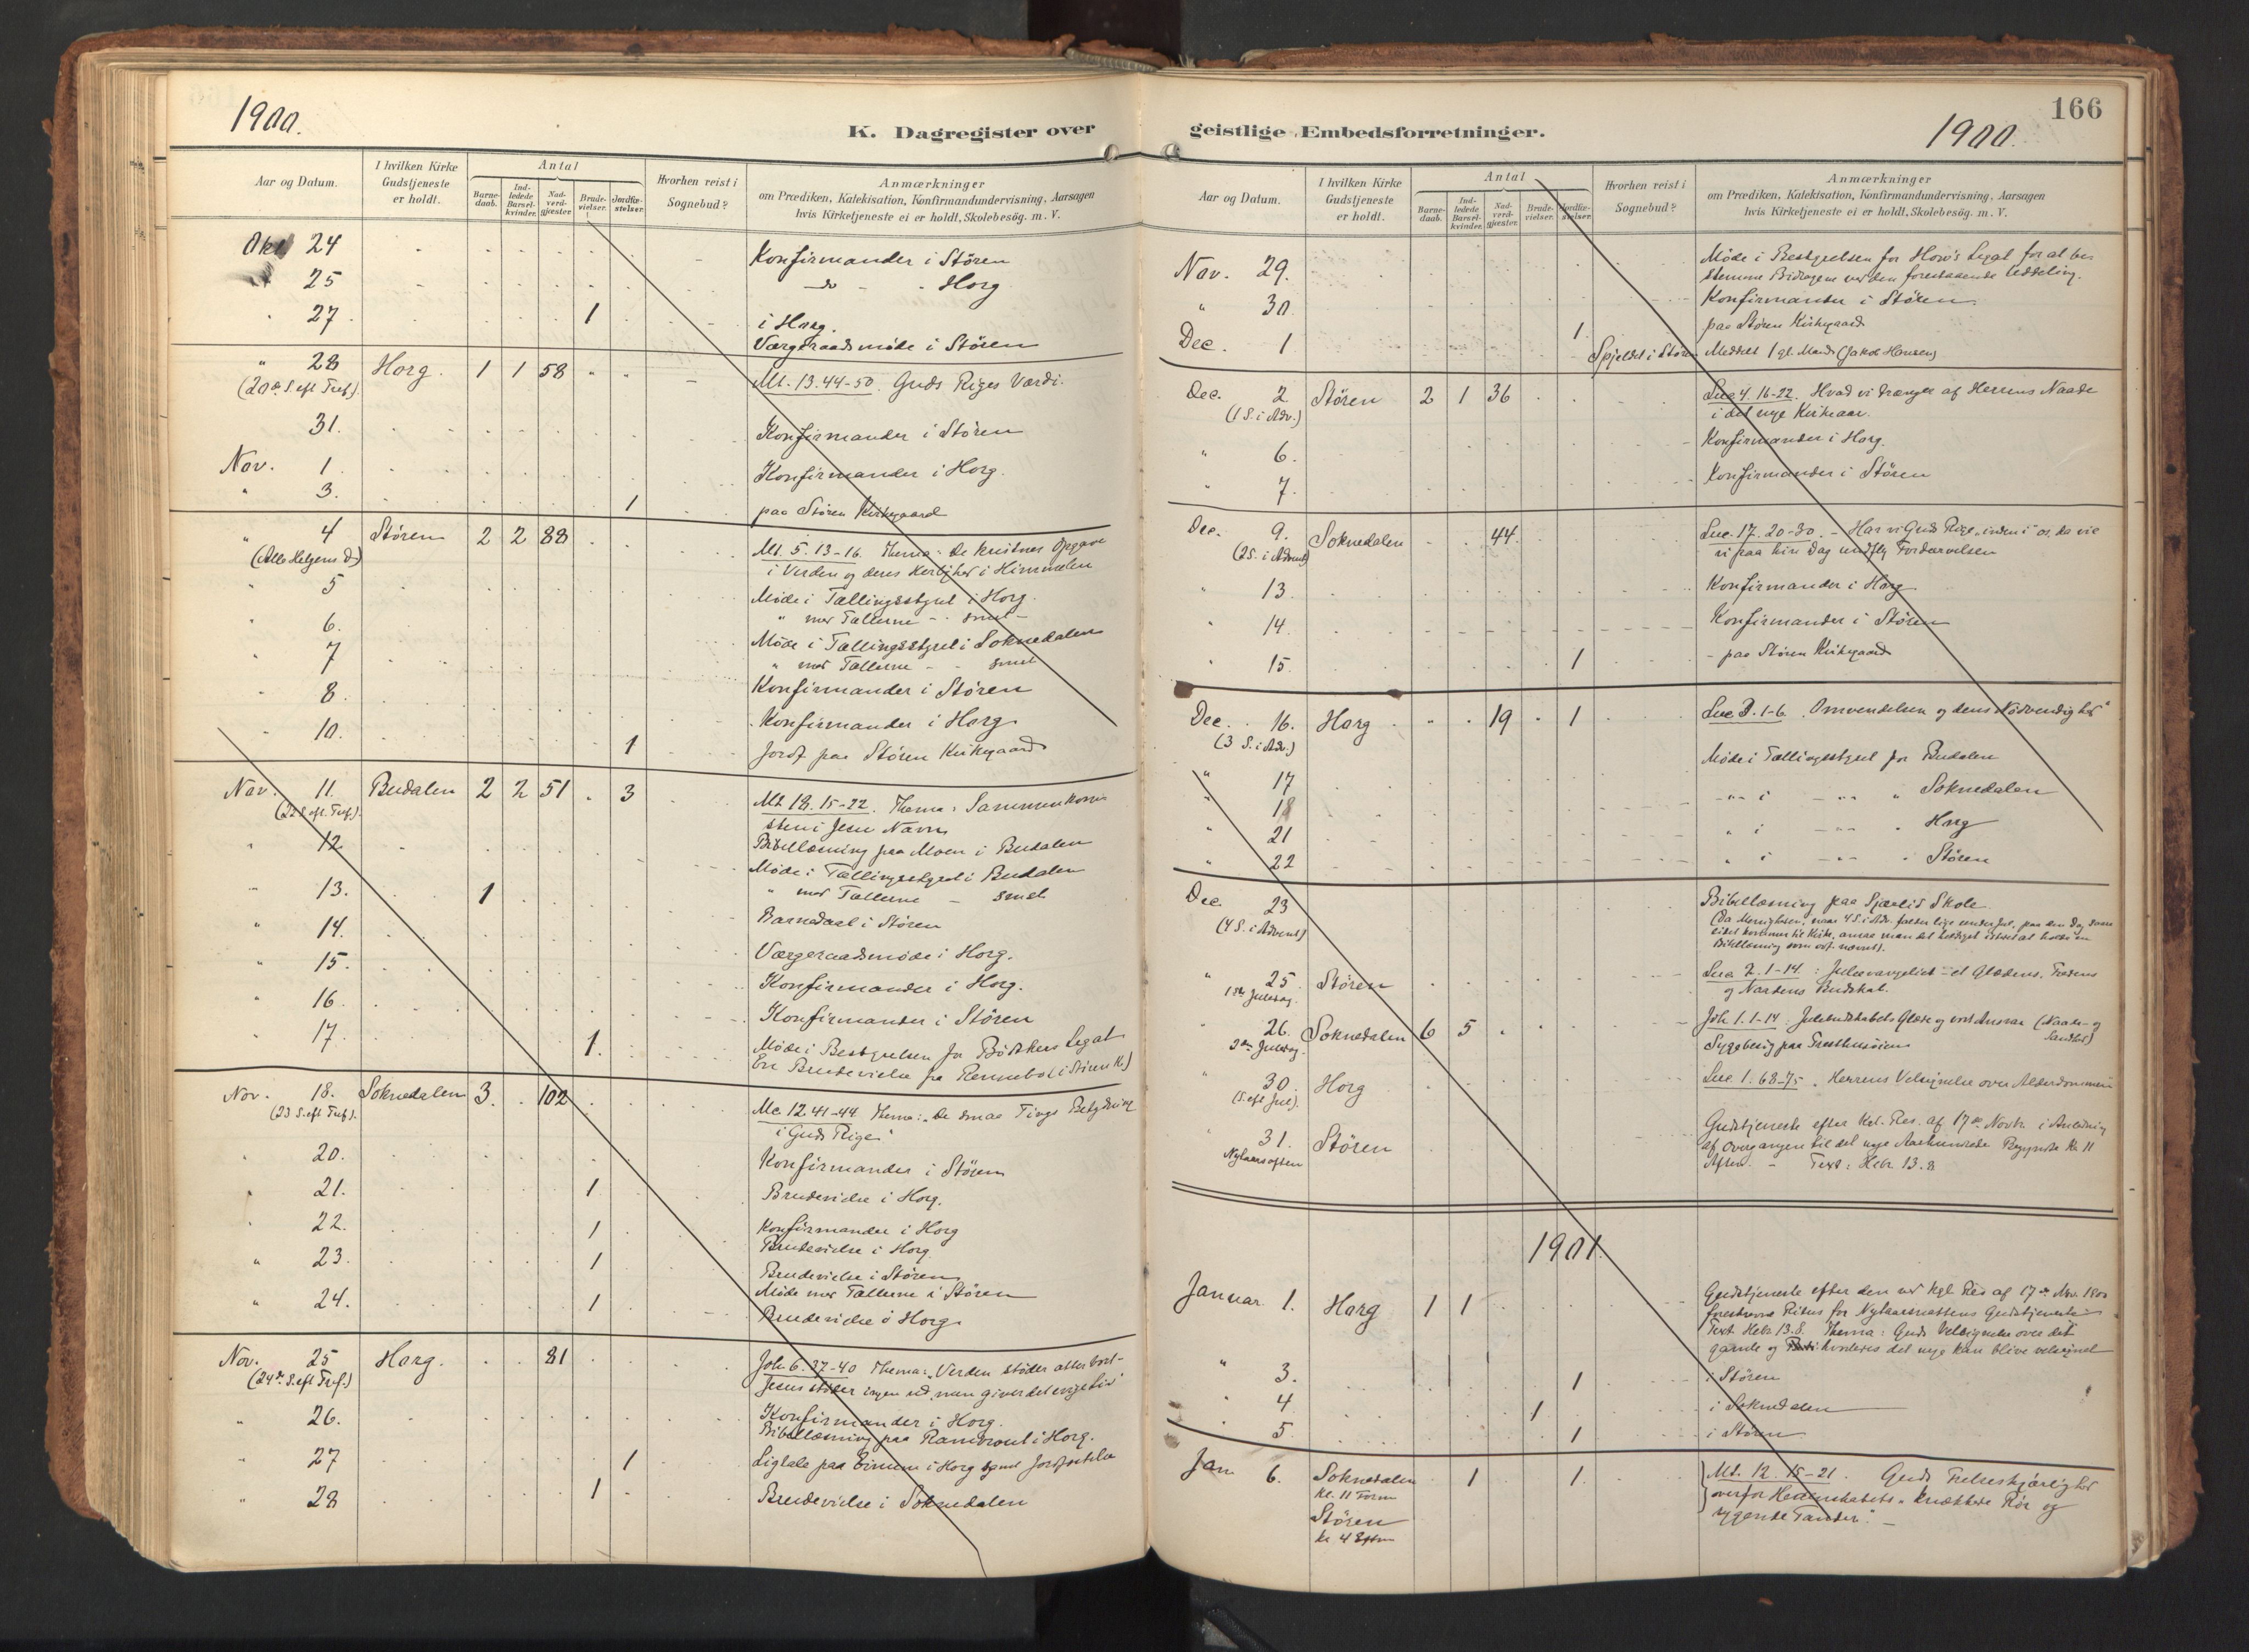 1900.
K. Dagregister over
Aar og Datum.
I hvilken Kirke Gudstjeneste er holdt.
Antal
Barne-daab.
Ind-ledede Barsel-kvinder.
Nad-verd-gjæster.
Brude-vielser.
Jordfæ-stelser.
Hvorhen reist i Sognebud?
Anmærkninger
om Prædiken, Katekisation, Konfirmandundervisning, Aarsagen
hvis Kirketjeneste ei er holdt, Skolebesög. m. V.
Okt 24 Konfirmander i Støren
25 - do - - Horg
27. 1 i Horg.
Værgeraadsmøde i Støren
" 28 Horg. 1 1 58 Mt. 13.44-50. Guds Riges Værdi.
(20de S. eft Tref.)
31. Konfirmander i Støren
Nov. 1. Konfirmander i Horg.
" 3. 1 paa Støren Kirkegaard
" 4 Støren 2 2 88 Mt. 5. 13-16. Thema: De kristnes Opgave
(Alle Helgens D.) i Verden og deres Herlighed i Himmelen
" 5 Møde i Tællingsstyret i Horg.
" med Tællerne - - smst -
6. Møde i Tællingsstyret i Soknedalen
7 " med Tællerne - - smst
8. Konfirmander i Støren
Konfirmander i Horg.
10. 1 Jordf paa Støren Kirkegaard
Nov. 11. Budalen 2 2 51 3 Mt 18. 15-22. Thema: Sammenkom-
(22 S. eft. Tref.) sten i Jesu Navn
" 12 Bibellæsning paa Moen i Budalen
Møde i Tællingsstyret i Budalen
" med Tællerne - smst
13. 1 Barnedaab i Støren
" 14. Værgeraadsmøde i Horg.
" 15. Konfirmander i Horg.
" 16. Konfirmander i Støren
" 17. 1. Møde i Bestyrelsen for Legat
En Brudevielse fra Rennebo (i Støren K)
Nov. 18. Soknedalen 3. 102 Mc 12.41-44 Thema: "De smaa Tings Betydning
(23 S. eft Tref). i Guds Rige"
20. Konfirmander i Støren
21. 1 Brudevielse i Horg.
22. 1 Konfirmander i Horg
Brudevielse i Horg.
" 23. 1 Brudevielse i Støren
Møde med Tællerne i Støren
" 24. 1 Brudevielse i Horg.
Nov. 25 Horg. 81 Joh 6. 37-40 Thema: "Verden støder atter bort -
(24de S. eft Tref.) Jesus støder ingen ud, men giver det evige Liv"
" 26. Konfirmander i Horg.
Bibellæsning paa i Horg.
" 27 1 Ligtale paa i Horg samt Jordfæstelse
" 28 1 Brudevielse i Soknedalen
166
geistlige Embedsforretninger.
1900.
Aar og Datum.
I hvilken Kirke Gudstjeneste er holdt.
Antal
Barne-daab.
Ind-ledede Barsel-kvinder.
Nad-verd-gjæster.
Brude-vielser.
Jordfæ-stelser.
Hvorhen reist i Sognebud?
Anmærkninger
om Prædiken, Katekisation, Konfirmandundervisning, Aarsagen
hvis Kirketjeneste ei er holdt, Skolebesög. m. V.
Nov. 29. Møde i Bestyrelsen for Legat for at be-
stemme Bidragene ved den forestaaende Uddeling.
" 30. Konfirmander i Støren.
Dec. 1 1 paa Støren Kirkegaard
Spjeldet i Støren Meddelt 1 gl. Mand (Jakob Hansen)
Dec. 2 Støren 2 1 36 Luc 4. 16-22. Hvad vi trænger af Herrens Naade
(1 S. i Adv.) i det nye Kirkeaar.
" 6. Konfirmander i Horg.
" 7. Konfirmander i Støren
Dec. 9. Soknedalen 44. Luc. 17. 20-30. - Har vi Guds Rige inden i os, da vil
(2 S. i Advent) vi paa hin Dag undfly Fordærvelsen
" 13. Konfirmander i Horg
14. Konfirmander i Støren
" 15. 1 - paa Støren Kirkegaard
Dec. 16. Horg 19 1 Luc 3. 1-6. "Omvendelsen og dens Nødvendighed"
(3 S. i Adv.)
" 17 Møde i Tællingsstyret for Budalen
" 18 - " i - " - " Soknedalen
" 21 " i - " - " Horg
" 22 " i - " - " Støren
Dec. 23 Bibellæsning paa Skole
(4 S. i Advent) (Da Menigheden, naar 4 S. i Adv. falder lige under Jul, paa den Dag
lidet kommer til Kirke, ansaa man det heldigst istedet at holde en
Bibellæsning som ovf. nævnt).
" 25 Støren Luc 2. 1-14. : Juleevangeliet et Glædens, Fredens
1ste Juledag. og Budskab.
" 26. Soknedalen 6 5 Joh. 1. 1-14. Julebudskabets Glæde og vort Ansvar (Naade- og Sandhed)
2den Juledag. Sygebesøg paa
" 30. Horg Luc. 1. 68-75. Herrens Velsignelse over Alderdommen
(S. eft Jul).
31. Støren Gudstjeneste efter Kgl. Res. af 17de Novbr. i Anledning
Nytaarsaften af Overgangen til det nye Aarhundrede Begyndte Kl 11
Aften. - Text: Hebr 13.8
1901.
Januar 1. Horg 1 1 Gudstjeneste efter den ved Kgl Res af 17de Nov. 1900
foreskrevne Ritus for Nytaarsnattens Gudstjeneste
Text Hebr 13.8. Thema: Guds Velsignelse over det
gamle og hvorledes det nye kan blive velsignet
" 3. 1 i Støren
" 4 1 i Soknedalen
" 5. 1 i Støren
Jan 6. Soknedalen 1 1. Mt. 12. 15-21. Guds Frelserkjærlighed
Kl. 11 Form overfor Hedenskabets "knækkede Rør og
Støren rygende Tander". -
kl 4 Eftm